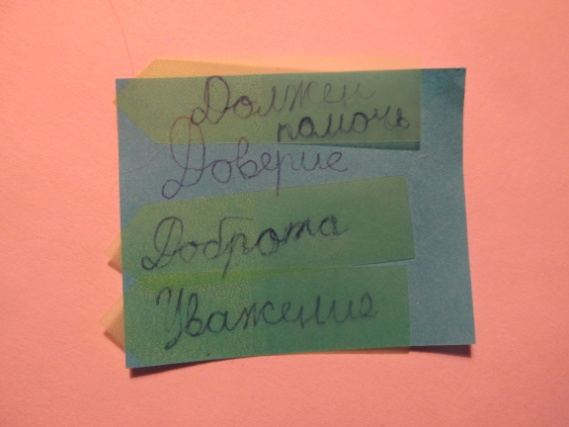 Должен
помочь
Доверие
Доброта
Уважение